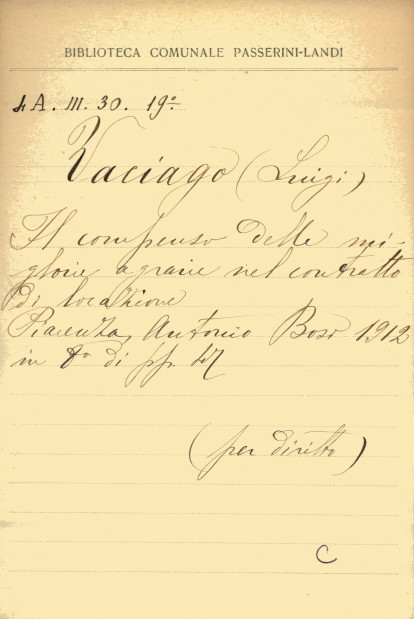 BIBLIOTECA COMUNALE PASSERINI-LANDI
4 A. III. 30. 19º
Vaciago (Luigi)
Il compenso delle mi-
gliorie agrarie nel contratto
di locazione
Piacenza, Antonio Bosi 1912
in 8º di pp. 47
(per diritto)
C